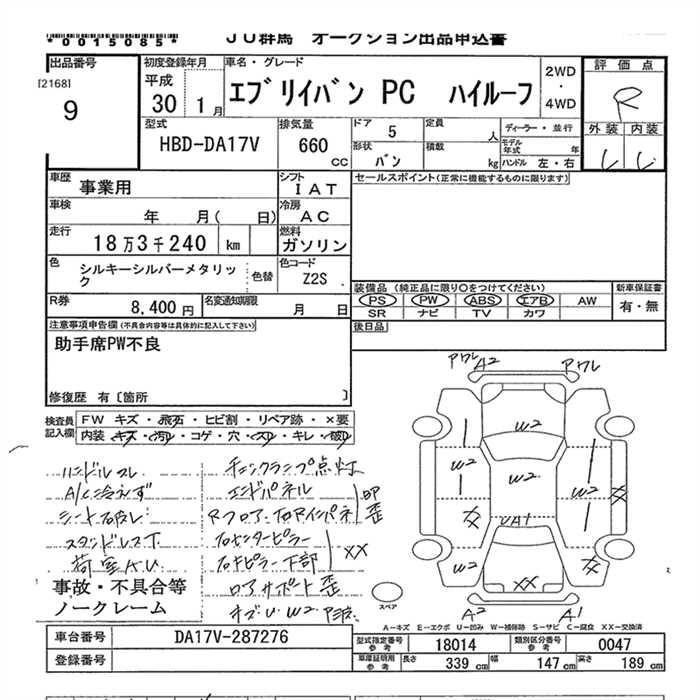 *0015085*
JU群馬 オークション出品申込書
出品番号
[2168]
9
初度登録年月
平成
30 1月
車名・グレード
エブリイバン PC ハイルーフ
2WD
・
4WD
評価点
R
外装 内装
型式
HBD-DA17V
排気量
660
cc
ドア 5
形状
バン
定員
人
積載
kg
ディーラー・並行
モデル年式 年
ハンドル 左・右
車歴 事業用
シフト
IAT
セールスポイント(正常に機能するものに限ります)
車検
年 月( 日)
冷房
AC
走行
18万3千240 km
燃料
ガソリン
色
シルキーシルバーメタリック
色替
色コード
Z2S
装備品(純正品に限り○をつけてください)
PS PW ABS エアB AW
SR ナビ TV カワ
新車保証書
有・無
R券
8,400円
名変通知期限
月 日
後日品
注意事項申告欄(不具合内容等は具体的に記入して下さい)
助手席PW不良
修復歴 有〔箇所 〕
検査員
記入欄
FW キズ・飛石・ヒビ割・リペア跡・×要
内装 キズ・汚れ・コゲ・穴・スレ・キレ・破れ
ハンドルスレ
A/C冷えず
シート破レ
荷室A.U
事故・不具合等
ノークレーム
チェックランプ点灯
エンドパネル
Rフロア、右Rインパネ
凹
歪
右センターピラー
XX
ロアサポート 歪
アワレ A2 アワレ
W2
W2
W2
W2
UA1
W2
XX
XX
A2 A1
スペア
A-キズ E-エクボ U-凹み W-補修跡 S-サビ C-腐食 XX-交換済
車台番号
DA17V-287276
登録番号
型式指定番号
参考
18014
類別区分番号
参考
0047
車庫証明用
参考
長さ 339 cm 幅 147 cm 高さ 189 cm